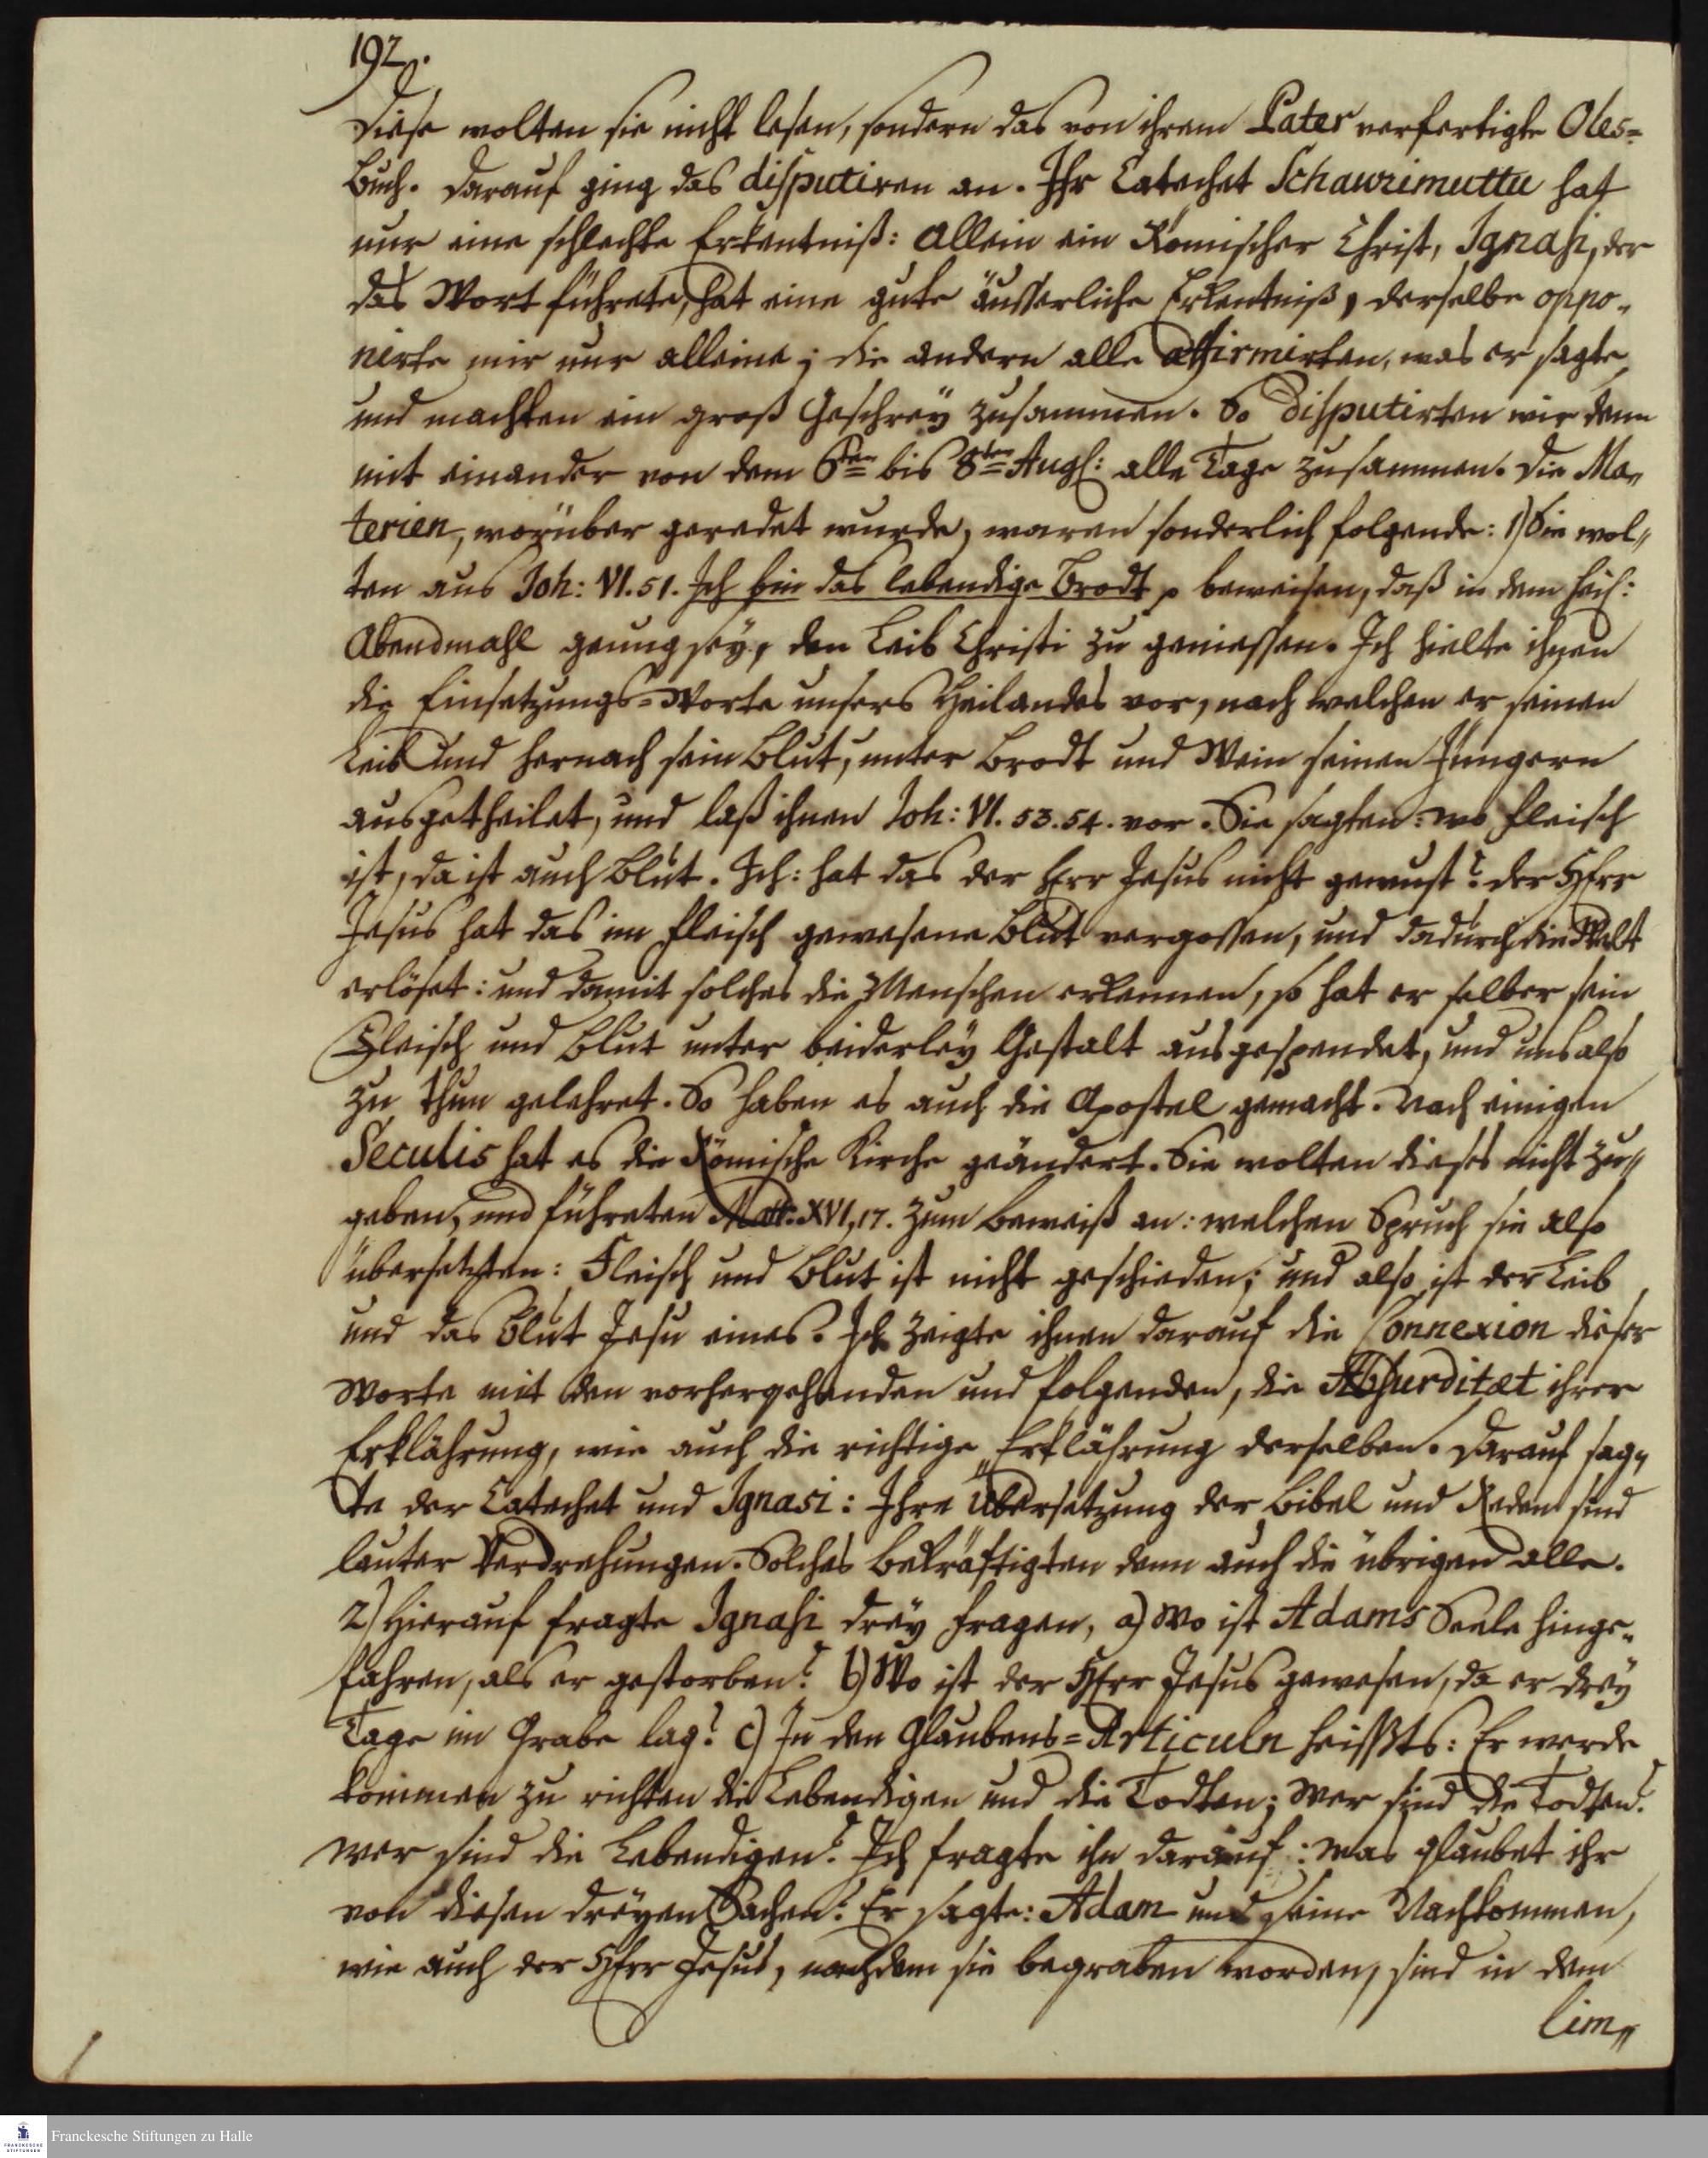 192.
Diese wolten sie nicht lesen, sondern das von ihrem Pater verfertigte Oles=
Buch. Darauf ging das disputiren an. Ihr Catechet Schawrimuttu hat
nur eine schlechte Erkentniß: Allein ein Römischer Christ, Ignasi, der
das Wort führete, hat eine gute äusserliche Erkentniß, derselbe oppo„
nirte mir nur alleine; die andern alle affirmirten, was er sagte,
und machten ein groß Geschrey zusammen. So disputirten wir denn
mit einander von dem 6ten bis 8ten Aug: alle Tage zusammen. Die Ma„
terien, worüber geredet wurde, waren sonderlich folgende: 1) Sie wol„
ten aus Joh: VI. 51. Ich bin das lebendige Brodt p beweisen, daß in dem heil:
Abendmahl genung sey, den Leib Christi zu geniessen. Ich hielte ihnen
die Einsetzungs=Worte unsers Heilandes vor, nach welchen er seinen
Leib und hernach sein Blut, unter Brodt und Wein seinen Jüngern
ausgetheilet, und laß ihnen Joh: VI. 53. 54. vor. Sie sagten: wo Fleisch
ist, da ist auch Blut. Ich: hat das der Herr Jesus nicht gewust? der HErr
Jesus hat das im Fleisch gewesene Blut vergossen, und dadurch die Welt
erlöset: und damit solches die Menschen erkennen, so hat er selber sein
Fleisch und Blut unter beiderley Gestalt ausgespendet, und uns also
zu thun gelehret. So haben es auch die Apostel gemacht. Nach einigen
Seculis hat es die Römische Kirche geändert. Sie wolten dieses nicht zu„
geben, und führeten Matt: XVI, 17. zum Beweiß an: welchen Spruch sie also
übersetzten: Fleisch und Blut ist nicht geschieden; und also ist der Leib
und das Blut Jesu eines. Ich zeigte ihnen darauf die Connexion dieser
Worte mit den vorhergehenden und folgenden, die Absurditæt ihrer
Erklährung, wie auch die richtige Erklährung derselben. Darauf sag„
te der Catechet und Ignasi: Ihre Übersetzung der Bibel und Reden sind
lauter Verdrehungen. Solches bekräftigten denn auch die übrigen alle.
2) Hierauf fragte Ignasi drey Fragen, a) Wo ist Adams Seele hinge„
fahren, als er gestorben? b) Wo ist der HErr Jesus gewesen, da er drey
Tage im Grabe lag? c) In den Glaubens=Articuln heissts: Er werde
kommen zu richten die Lebendigen und die Todten; Wer sind die Todten?
wer sind die Lebendigen? Ich fragte ihn darauf: was glaubet ihr
von diesen dreyen Sachen? Er sagte: Adam und seine Nachkommen,
wie auch der HErr Jesus, nachdem sie begraben worden, sind in dem
lim„
Franckesche Stiftungen zu Halle